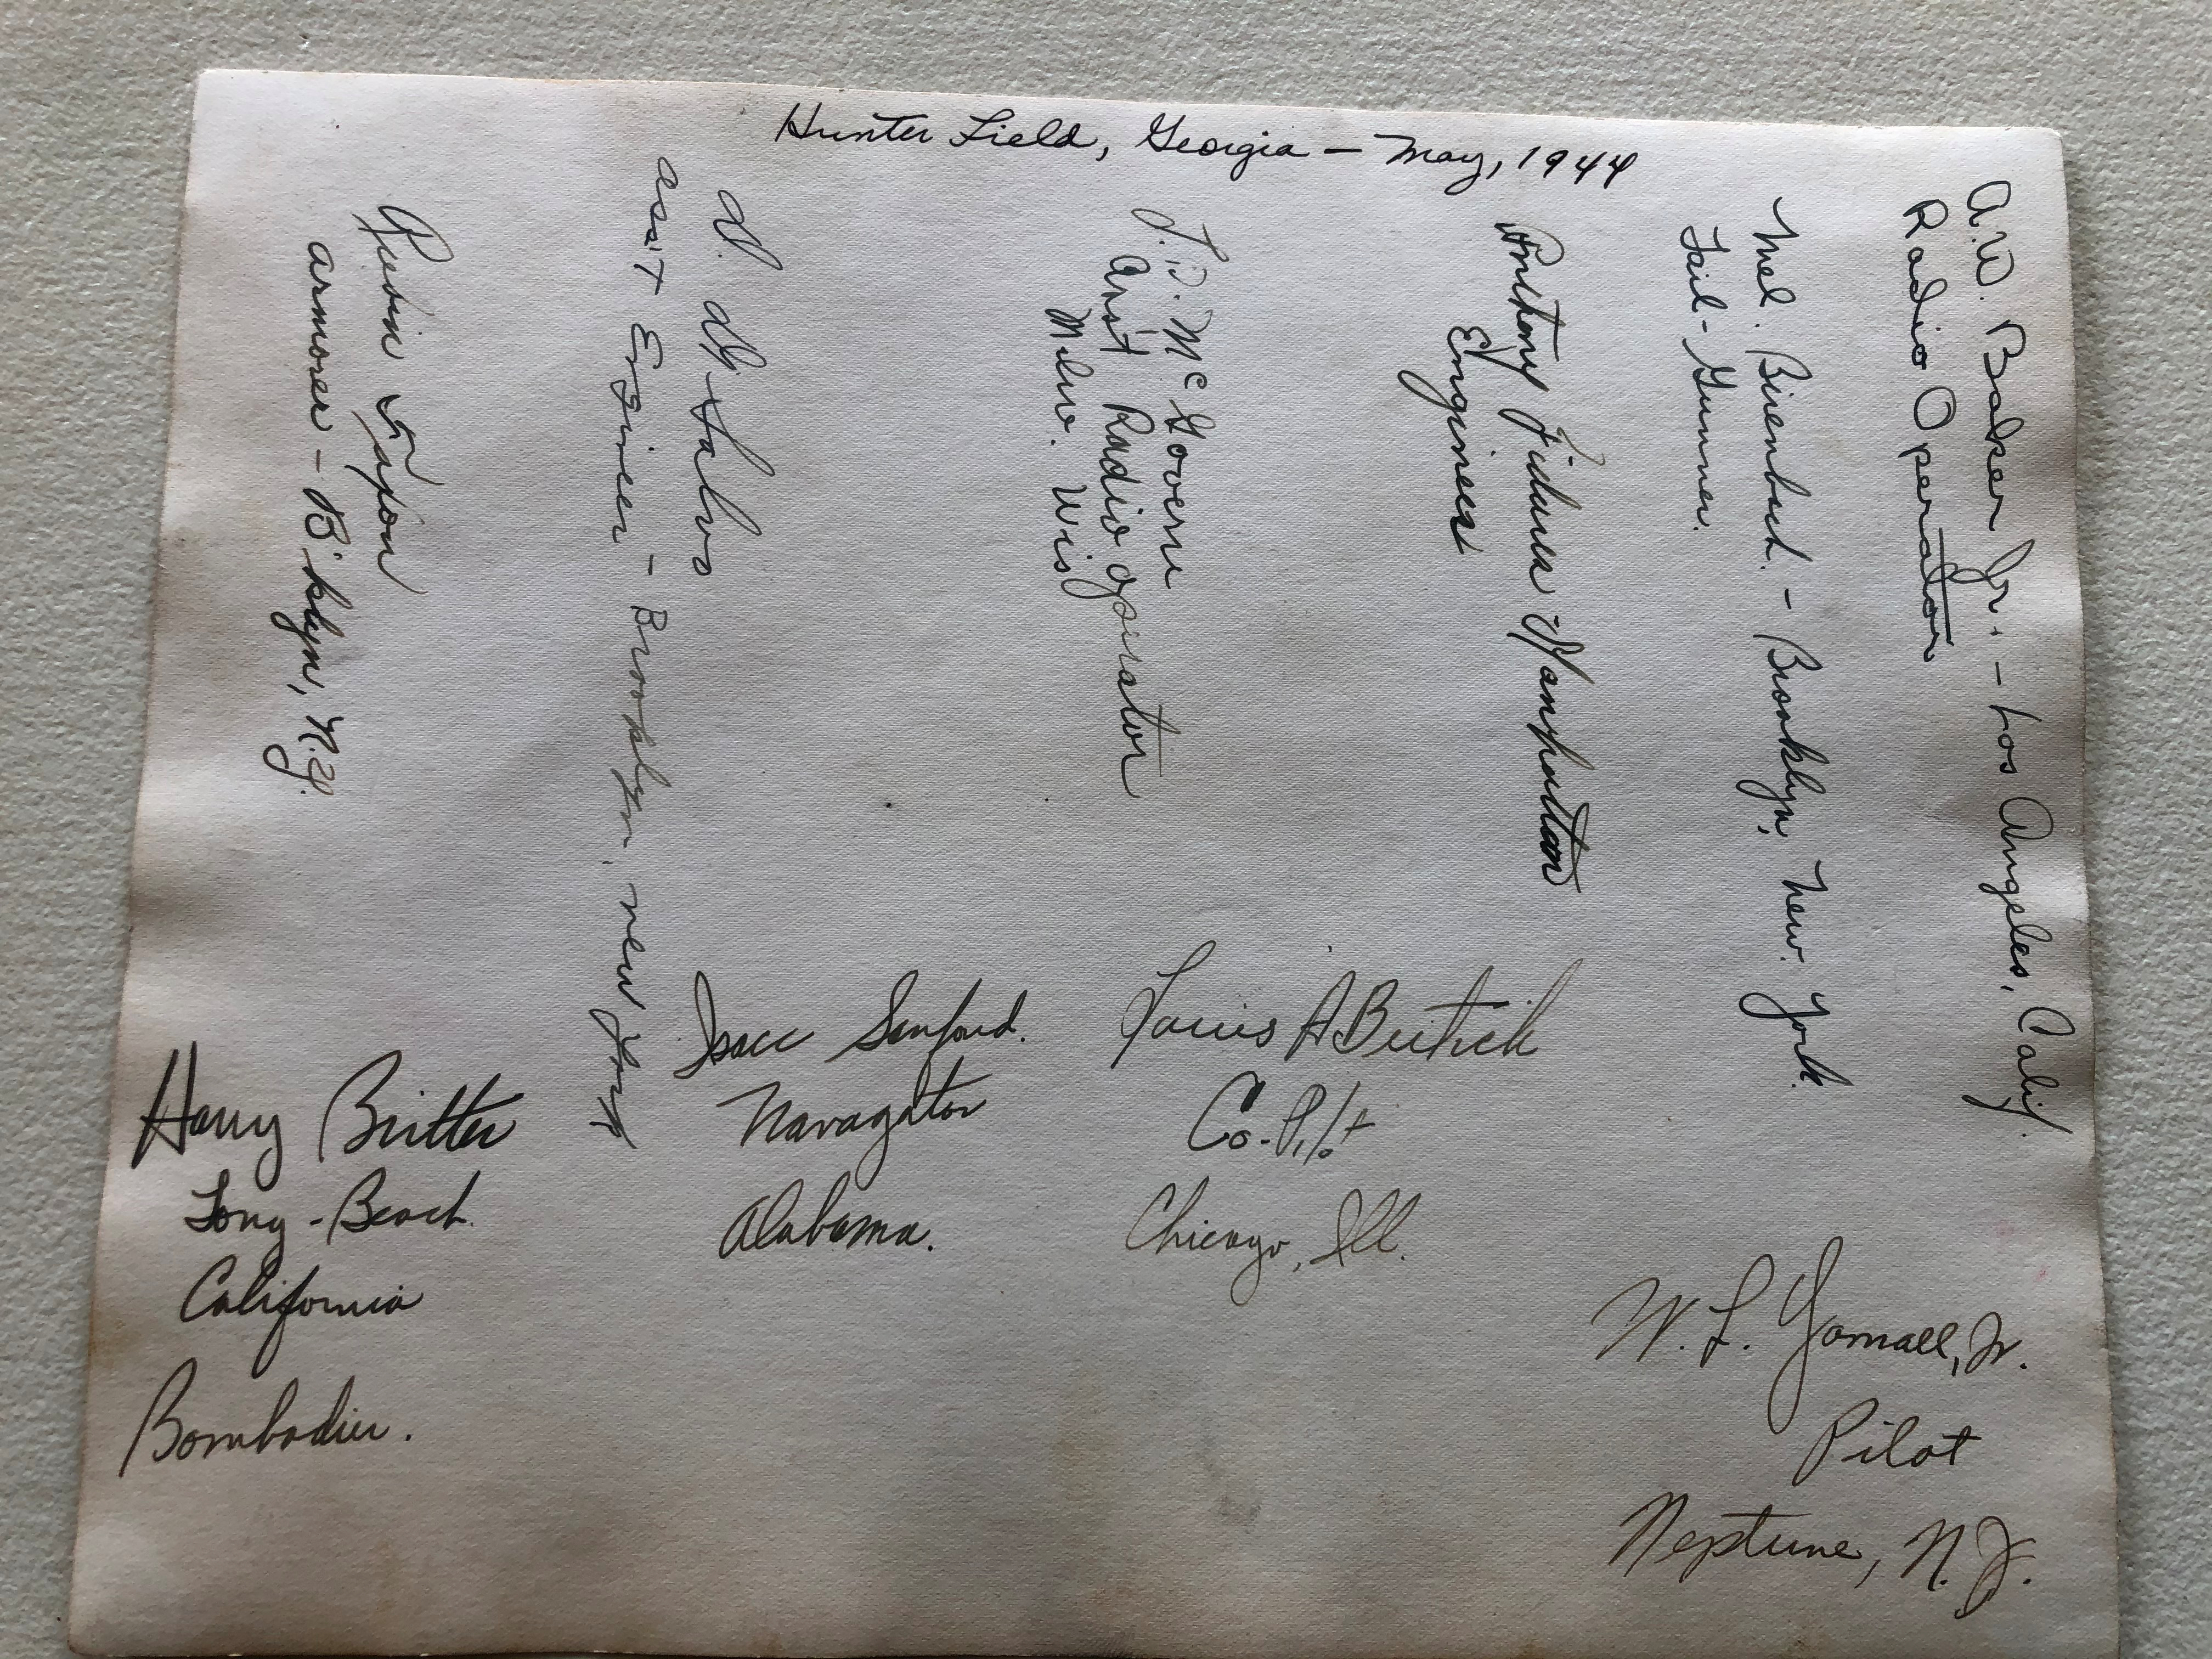 Hunter Field, Georgia — May, 1944
A.W. Baker Jr. - Los Angeles, Calif.
Radio Operator
Mel. Birenbach. - Brooklyn, New. York.
Tail-Gunner.
Anthony Manhattan
Engineer
J. Mc Govern
Asst Radio operator
Milw. Wis
D.
asst Engineer - Brooklyn, new york
Rubin
armorer - B'klyn, N.Y.
Isacc Sanford.
Navagator
Alabama.
Louis A
Co. Pilot
Chicago, Ill.
Harry Britter
Long-Beach.
California
Bombadier.
W. L. Yarnall, Jr.
Pilot
Neptune, N. J.